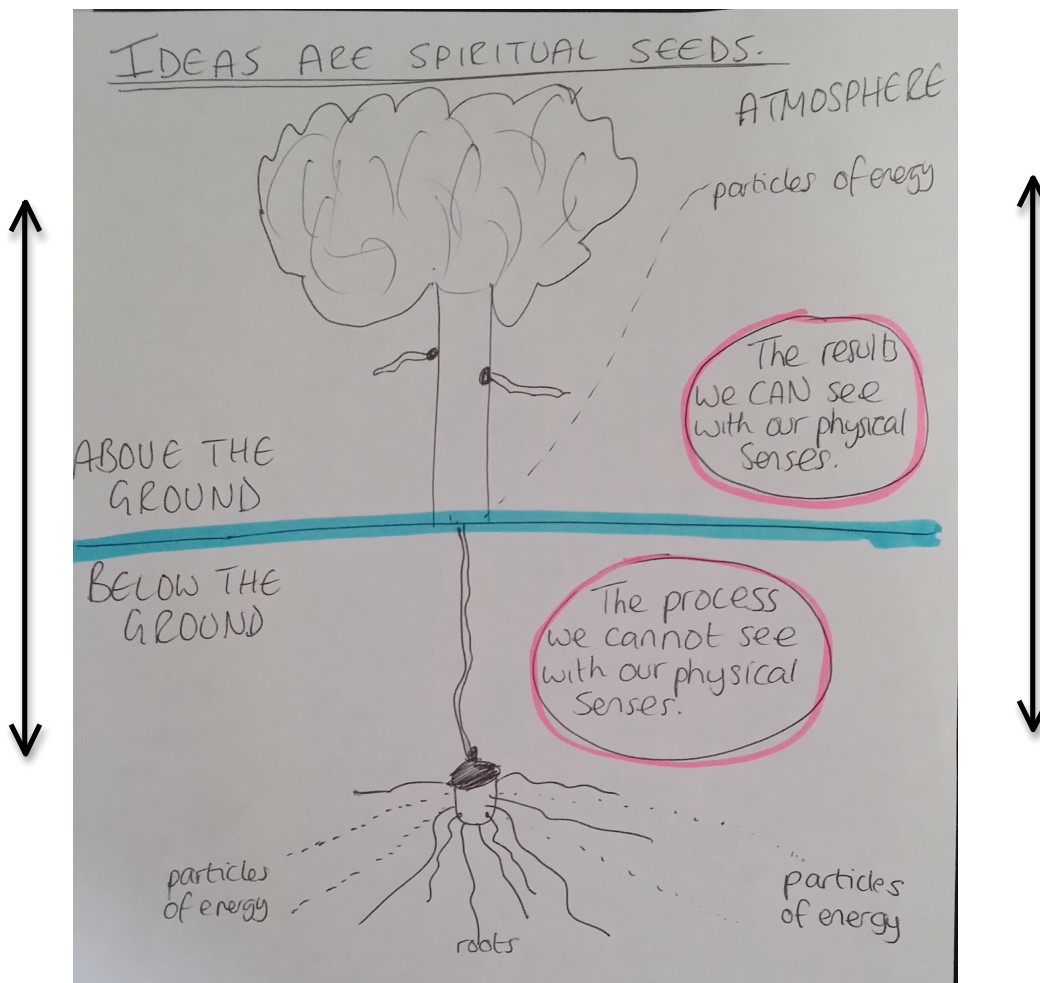 IDEAS ARE SPIRITUAL SEEDS.
ATMOSPHERE
particles of energy
The results
we CAN see
with our physical
senses.
ABOVE THE
GROUND
BELOW THE
GROUND
The process
we cannot see
with our physical
senses.
particles
of energy
particles
of energy
roots